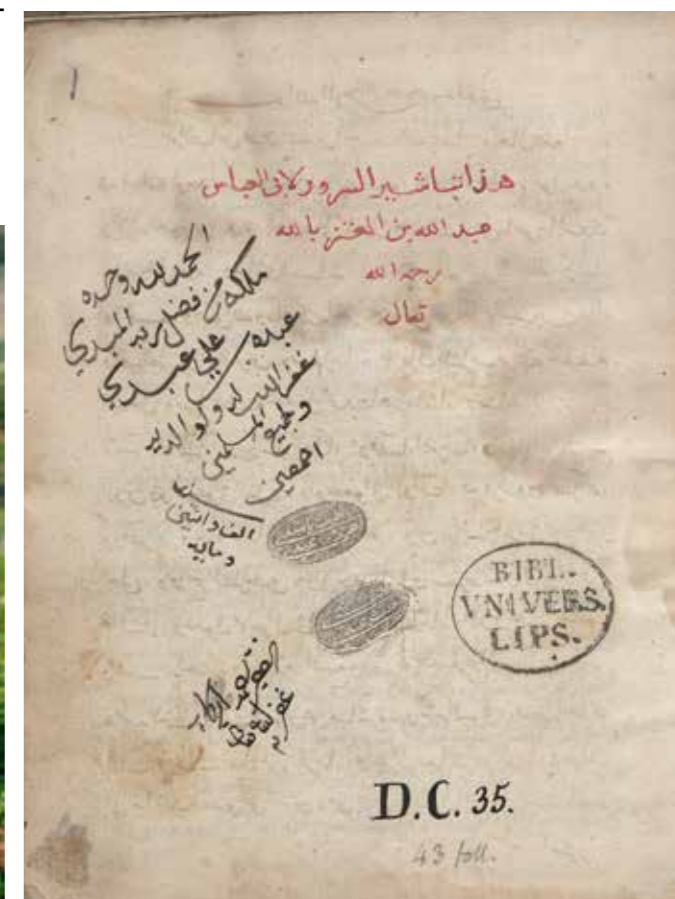 1
هذا تباشير السرور لابى العباس
عبد الله بن المعتز بالله
رحمه الله
تعالى
الحمد لله وحده
ملكه من فضل ربه المبدي
عبده علي عبدي
غفر الله له ولوالديه
ولجميع المسلمين
اجمعين
سنه
الف واثنين
ومايه
BIBL.
VNIVERS.
LIPS.
D.C. 35.
43 foll.